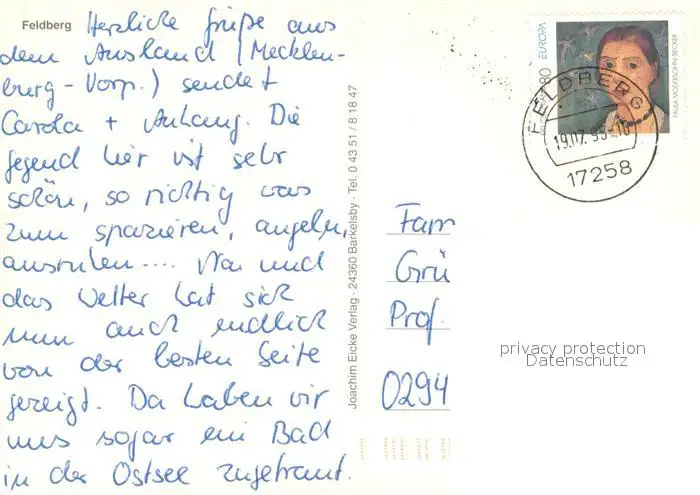 Feldberg
Herzliche Grüße aus
dem Ausland (Mecklen-
burg-Vorp.) sendet
Carola + Anhang. Die
Gegend hier ist sehr
schön, so richtig was
zum spazieren, angeln,
ausruhen.... Na und
das Wetter hat sich
nun auch endlich
von der besten Seite
gezeigt. Da haben wir
uns sogar ein Bad
in der Ostsee zugetraut.
Joachim Eicke Verlag · 24360 Barkelsby · Tel. 0 43 51 / 8 18 47
EUROPA
80
PAULA MODERSOHN-BECKER
FELDBERG
17258
Fam
Grü
Prof.
0294
privacy protection
Datenschutz